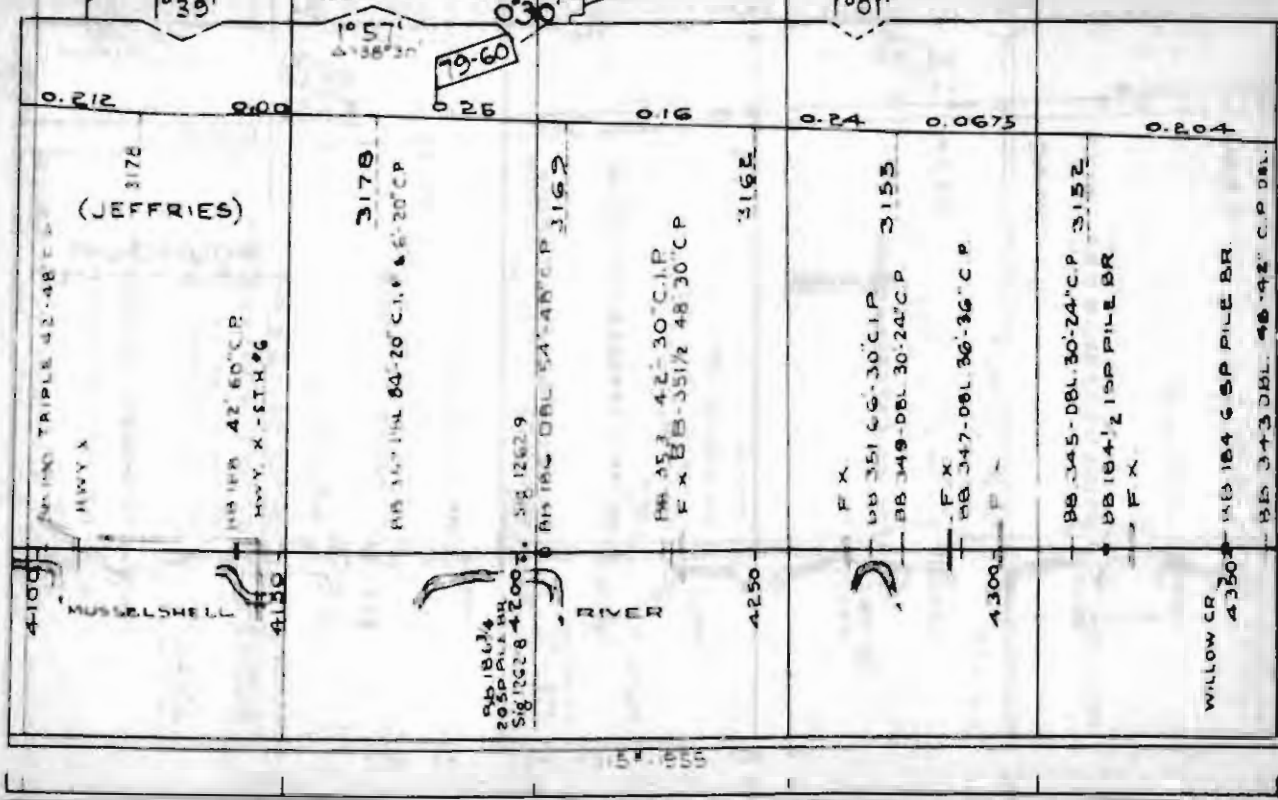 1°39'
1°57'
0°30'
1°01'
79-60
0.212
0.00
0.26
0.16
0.24
0.0675
0.204
3178
(JEFFRIES)
3178
3169
3162
3153
3152
TRIPLE 42'-48" C.P.
HWY X
BB 188 42' 60" C.P.
HWY. X - S.T.H. #6
84'-20" C.I.P. & 6'-20" C.P.
Sig. 1262.9
BB 186 DBL 54'-48" C.P.
BB 353 42'-30" C.I.P.
F X BB-351 1/2 48' 30" C.P.
F X
BB 351 66'-30" C.I.P
BB 349-DBL 30'-24" C.P
F X
BB 347-DBL 36'-36" C.P.
F X
BB 345-DBL. 30'-24" C.P
BB 184-1/2 1SP PILE BR
F X
BB 184 6 SP PILE BR.
BB 343 DBL. 48'-42" C.P. DBL
4100
MUSSELSHELL
4150
BB 186 3/4
20 SP PILE BR
Sig 1262.8
4200
RIVER
4250
4300
WILLOW CR
4350
115#-1955